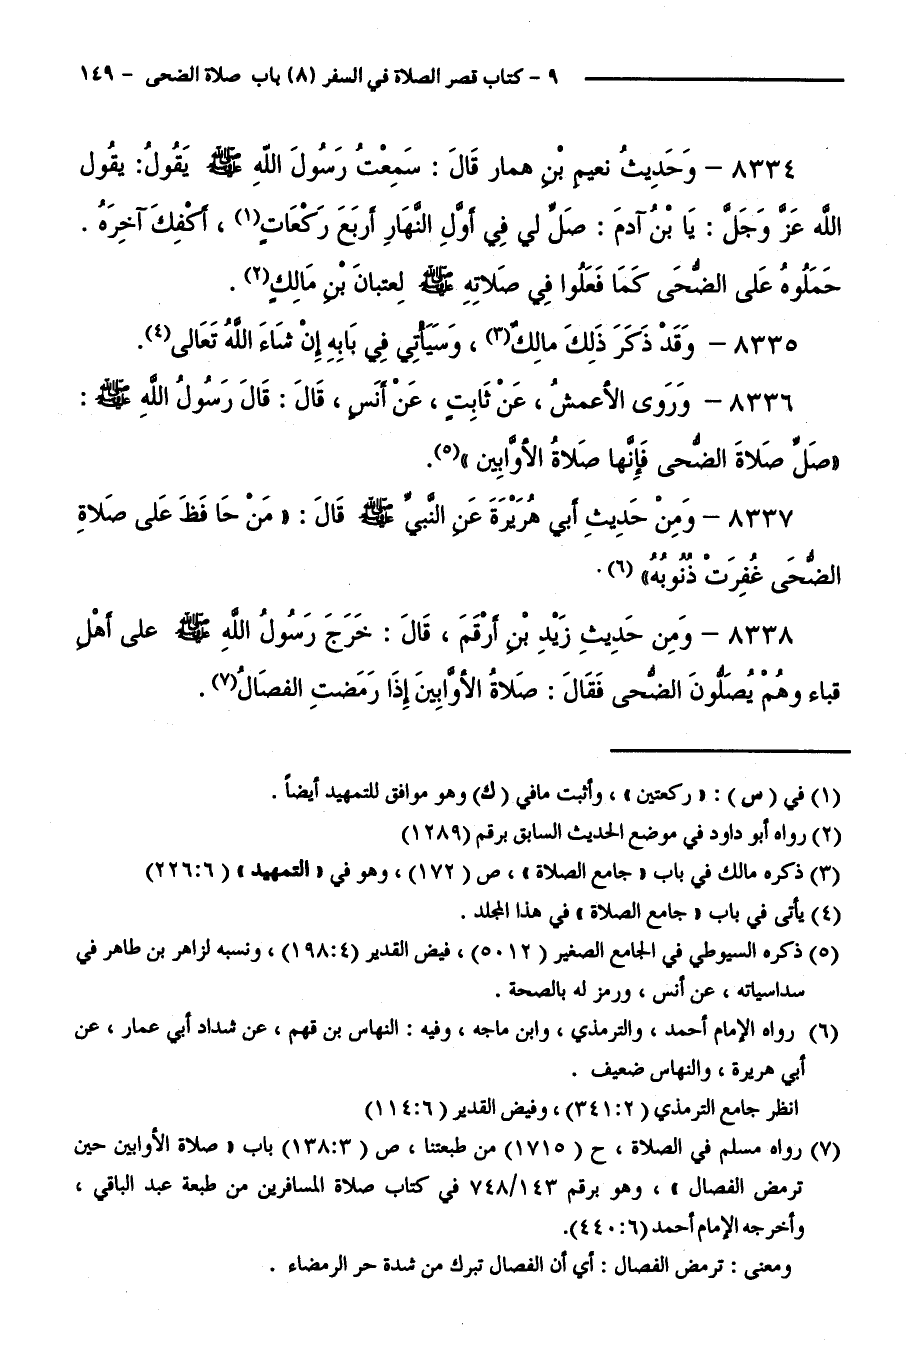 ٩ - كتاب قصر الصلاة في السفر (٨) باب صلاة الضحى - ١٤٩
٨٣٣٤ - وَحَدِيثُ نعيمِ بْنِ همار قَالَ : سَمِعْتُ رَسُولَ اللَّهِ ﷺ يَقُولُ: يقول
اللَّه عَزَّ وَجَلَّ : يَا بْنُ آدمَ : صَلِّ لي فِي أَوَّلِ النَّهَارِ أربَعَ رَكْعَاتٍ(١) ، أكْفِكَ آخِرَهُ .
حَمَلُوهُ عَلى الضُّحَى كَمَا فَعَلُوا فِي صَلَاتِهِ ﷺ لِعتبانَ بْنِ مَالِكٍ(٢) .
٨٣٣٥ - وَقَدْ ذَكَرَ ذَلِكَ مالِكٌ(٣) ، وَسَيَأْتِي فِي بَابِهِ إِنْ شَاءَ اللَّهُ تَعَالى(٤).
٨٣٣٦ - وَرَوَى الأعمشُ ، عَنْ ثَابِتٍ ، عَنْ أنَسٍ ، قَالَ : قَالَ رَسُولُ اللَّهِ ﷺ :
«صَلِّ صَلَاةَ الضُّحى فَإِنَّها صَلَاةُ الأوَّابِين »(٥).
٨٣٣٧ - وَمِنْ حَدِيثِ أبي هُرَيْرَةَ عَنِ النَّبِيِّ ﷺ قَالَ : « مَنْ حَا فَظَ عَلى صَلَاةِ
الضُّحَى غُفِرَتْ ذُنُوبُهُ» (٦).
٨٣٣٨ - وَمِن حَدِيثِ زَيْدِ بْنِ أرْقَمَ ، قَالَ : خَرَجَ رَسُولُ اللَّهِ ﷺ على أهْلِ
قباء وهُمْ يُصَلُّونَ الضُّحى فَقَالَ : صَلَاةُ الأوَّابِينَ إِذَا رَمَضتِ الفصَالُ(٧) .
(١) في ( س ) : « ركعتين » ، وأثبت مافي ( ك) وهو موافق للتمهيد أيضاً .
(٢) رواه أبو داود في موضع الحديث السابق برقم (١٢٨٩)
(٣) ذكره مالك في باب « جامع الصلاة » ، ص ( ١٧٢) ، وهو في « التمهيد » ( ٢٢٦:٦)
(٤) يأتى في باب « جامع الصلاة » في هذا المجلد .
(٥) ذكره السيوطي في الجامع الصغير ( ٥٠١٢) ، فيض القدير (١٩٨:٤) ، ونسبه لزاهر بن طاهر في
سداسياته ، عن أنس ، ورمز له بالصحة .
(٦) رواه الإمام أحمد ، والترمذي ، وابن ماجه ، وفيه : النهاس بن قهم ، عن شداد أبي عمار ، عن
أبي هريرة ، والنهاس ضعيف .
انظر جامع الترمذي ( ٣٤١:٢) ، وفيض القدير ( ١١٤:٦)
(٧) رواه مسلم في الصلاة ، ح ( ١٧١٥) من طبعتنا ، ص ( ١٣٨:٣) باب « صلاة الأوابين حين
ترمض الفصال » ، وهو برقم ٧٤٨/١٤٣ في كتاب صلاة المسافرين من طبعة عبد الباقي ،
وأخرجه الإمام أحمد (٤٤٠:٦).
ومعنى : ترمض الفصال : أي أن الفصال تبرك من شدة حر الرمضاء .